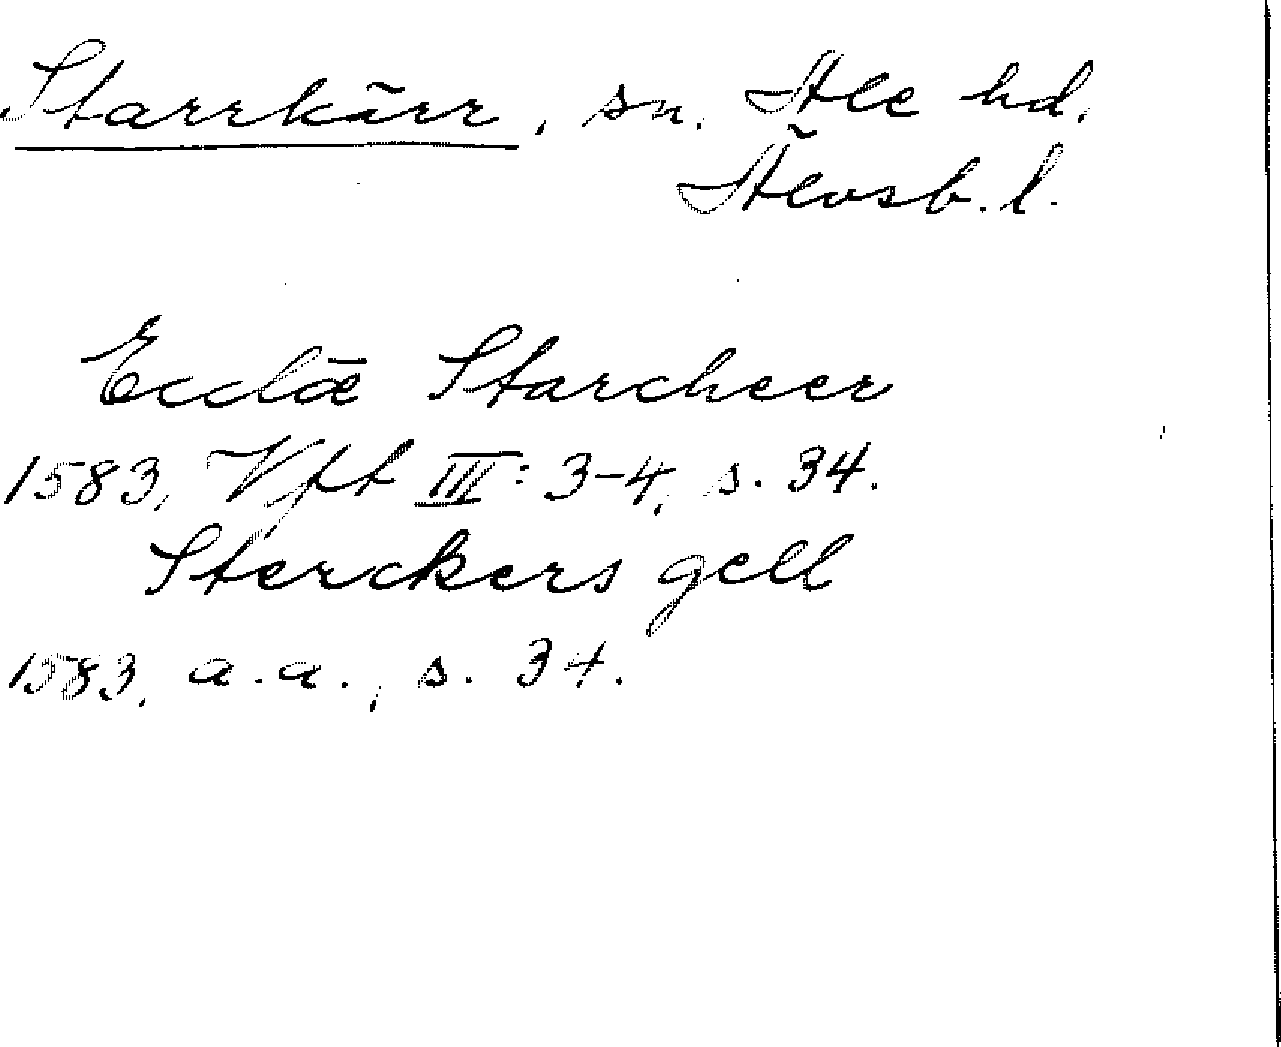 Starrkärr, sn. Ale hd.
Älvsb. l.
Ecclæ̅ Starcheer
1583, Vfft III: 3-4, s. 34.
Sterckers gell
1583, a.a., s. 34.